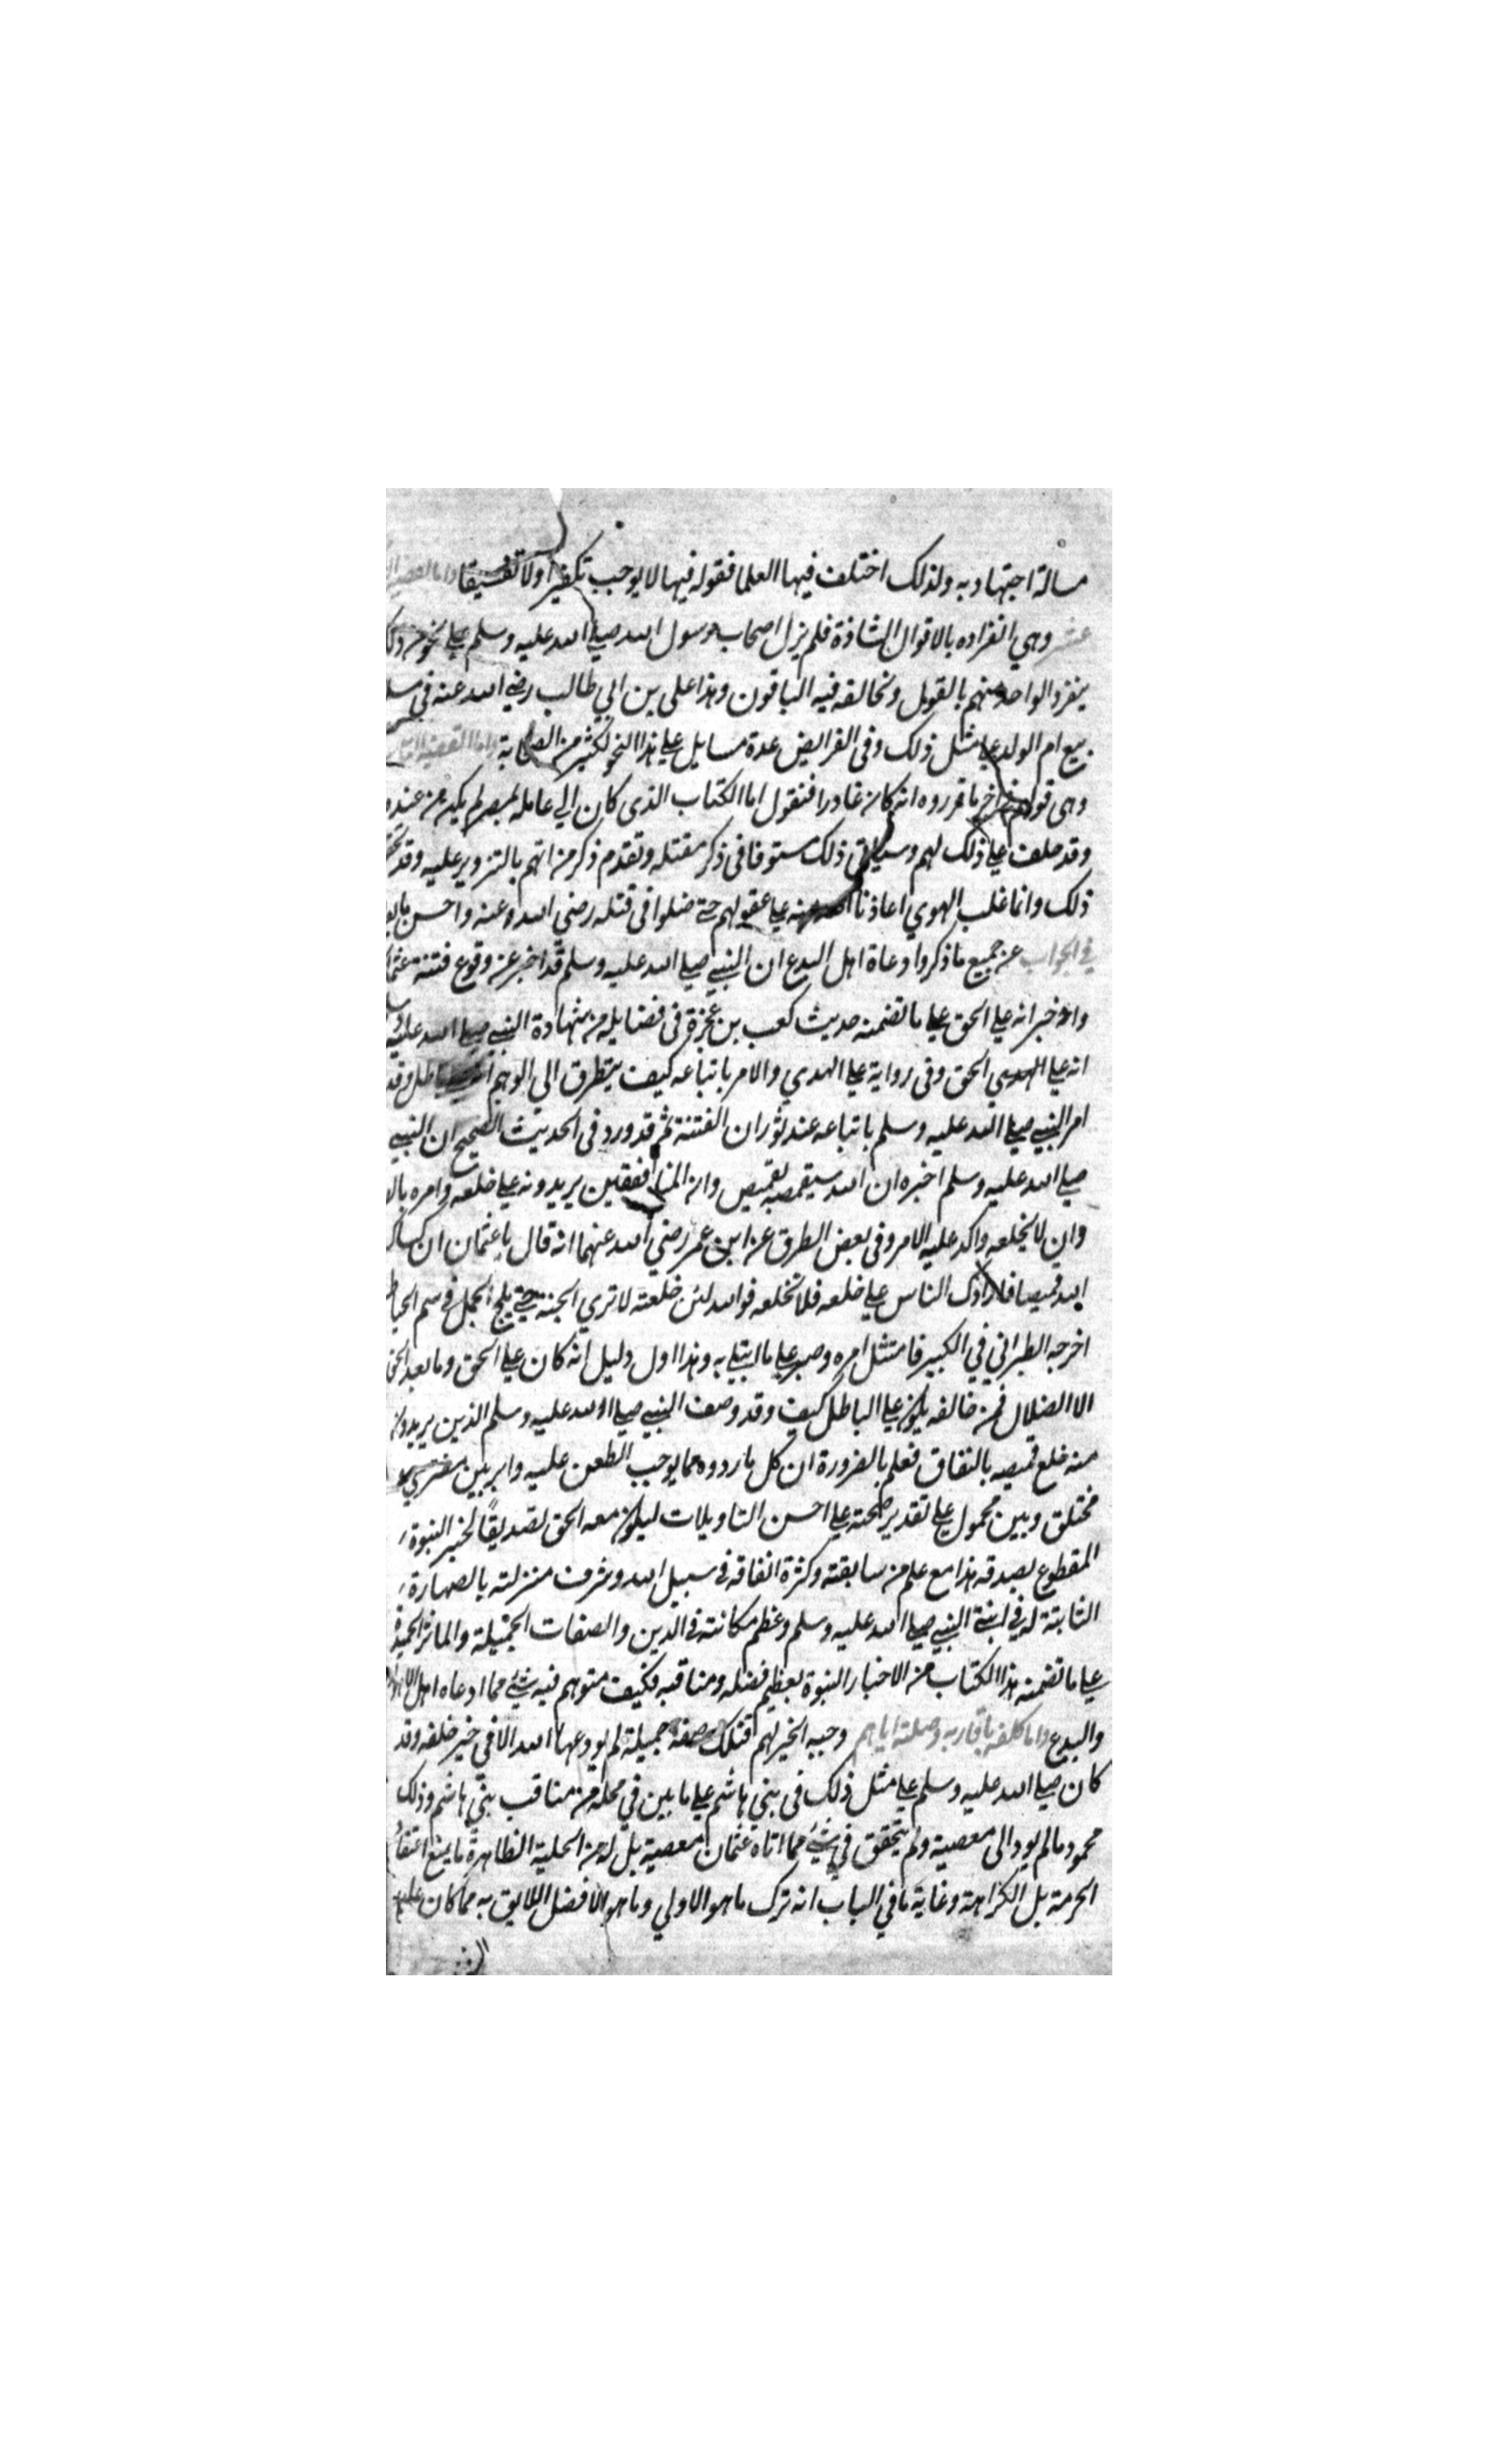 مسالة اجتهاديه ولذلك اختلف فيها العلما فقوله فيها لا يوجب تكفيرا ولا تفسيقا واما القضية
عشر وهي انفراده بالاقوال الشاذة فلم يزل اصحاب رسول الله صلي الله عليه وسلم علي نحو من ذلك
ينفرد الواحد منهم بالقول ويخالفه فيه الباقون وهذا علي بن ابي طالب رضي الله عنه في
بيع ام الولد علي مثل ذلك وفي الفرايض عدة مسايل علي هذا النحو لكثير من الصحابة واما القضية
وهي قولهم اخر ما قرروه انه كان غادرا فنقول اما الكتاب الذي كان الي عامله بمصر لم يكن من عنده
وقد حلف علي ذلك لهم وسياتي ذلك مستوفا في ذكر مقتله وتقدم ذكر من اتهم بالتزوير عليه وقد
ذلك وانما غلب الهوي اعاذنا الله منه علي عقولهم حتي ضلوا في قتله رضي الله عنه واحسن ما
في الجواب عن جميع ما ذكروا دعاة اهل البدع ان النبي صلي الله عليه وسلم قد اخبر عن وقوع فتنة
واخبر انه علي الحق علي ما تضمنه حديث كعب بن عجرة في فضايله من شهادة النبي صلي الله عليه
انه علي الحق وفي رواية علي الهدي والامر باتباعه كيف يتطرق الي الوهم انه علي باطل وقد
امر النبي صلي الله عليه وسلم باتباعه عند ثوران الفتنة ثم قد ورد في الحديث الصحيح ان النبي
صلي الله عليه وسلم اخبره ان الله سيقمصه بقميص وان المنافقين يريدونه علي خلعه وامره
وان لا يخلعه واكد عليه الامر وفي بعض الطرق عن ابن عمر رضي الله عنهما انه قال يا عثمان ان كساك
الله قميصا فارادك الناس علي خلعه فلا تخلعه فوالله لئن خلعته لا تري الجنة حتي يلج الجمل في سم
اخرجه الطبراني في الكبير فامتثل امره وصبر علي ما ابتلي به وهذا اول دليل انه كان علي الحق وما بعد الحق
الا الضلال فمن خالفه يكون علي الباطل كيف وقد وصف النبي صلي الله عليه وسلم الذين يريدون
منه خلع قميصه بالنفاق فعلم بالضرورة ان كل ما ردوه مما يوجب الطعن عليه داير بين مفتري
مختلق وبين محمول علي تقدير صحته علي احسن التاويلات ليكون معه الحق تصديقًا لخبر النبوة
المقطوع بصدقه هذا مع علم من سابقته وكثرة انفاقه في سبيل الله وشرف منزلته بالصهارة
الثابتة له في ابنتي النبي صلي الله عليه وسلم وعظم مكانته في الدين والصفات الجميلة والماثر الحميدة
علي ما تضمنه هذا الكتاب من الاخبار النبوة بعظيم فضله ومناقبه فكيف متوهم فيه شئ مما ادعاه اهل الاهوا
والبدع واما كلفه باقاربه وصلته اياهم وحبه الخير لهم فتلك صفة جميلة لم يودعها الله الا في خير خلقه وقد
كان صلي الله عليه وسلم علي مثل ذلك في بني هاشم علي ما بين في محله من مناقب بني هاشم وذلك
محمود ما لم يود الي معصية ولم يتحقق في شئ مما اتاه عثمان معصية بل له من الحلية الظاهرة ما يمنع اعتقاد
الحرمة بل الكراهة وغاية ما في الباب انه ترك ما هو الاولي وما هو الافضل اللايق به مما كان عليه